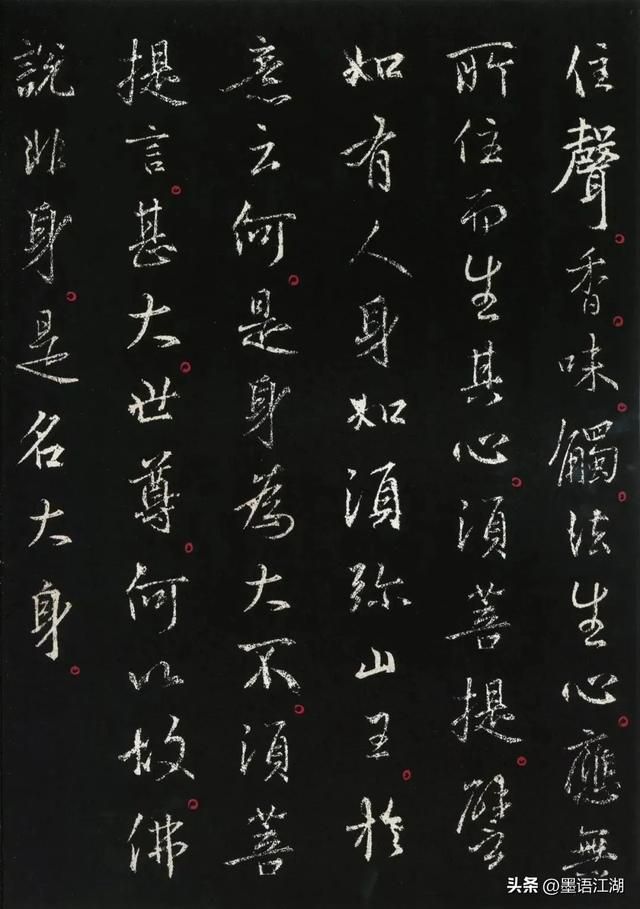 住聲香味觸法生心應無
所住而生其心須菩提譬
如有人身如須弥山王於
意云何是身為大不須菩
提言甚大世尊何以故佛
說非身是名大身
头条 @墨语江湖